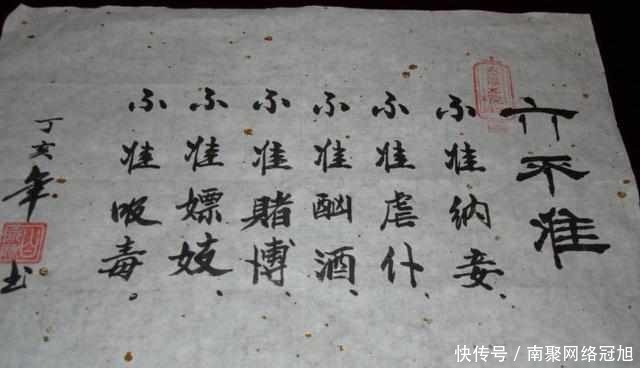 六不准
不准纳妾、
不准虐仆、
不准酗酒、
不准賭博、
不准嫖妓、
不准吸毒。
丁亥年
书
快传号 / 南聚网络冠旭